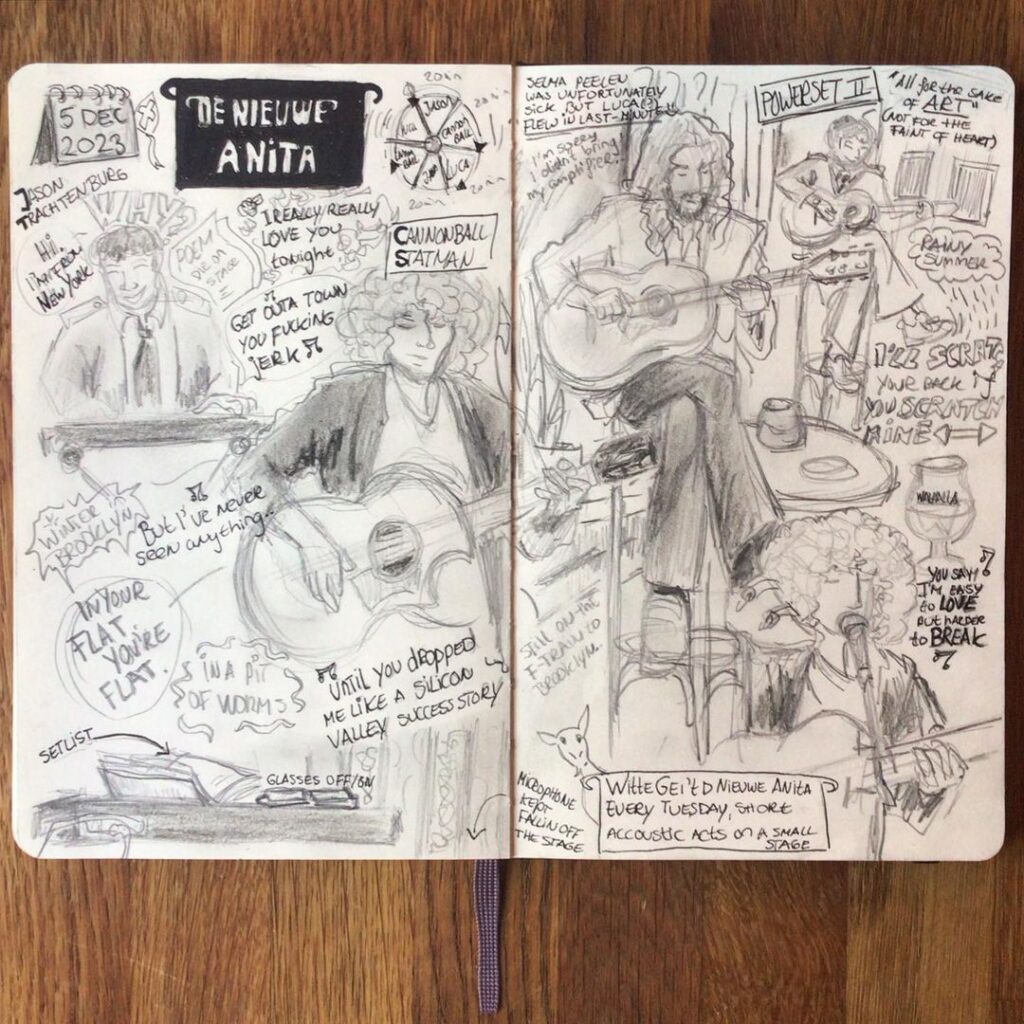 5 DEC
2023
DE NIEUWE
ANITA
20min
20min
20min
20min
JASON
CANNON
BALL
LUCA
JASON
TRACHTENBURG
WHY?
Hi!
I'm from
NEW YORK
POEM
DIE ON
STAGE
I REALLY REALLY
LOVE YOU
tonight
CANNONBALL
STATMAN
GET OUTA TOWN
YOU FUCKING
JERK
WINTER
BROOKLYN
But I've never
seen anything..
IN YOUR
FLAT
YOU'RE
FLAT.
IN A PIT
OF WORMS
UNTIL YOU DROPPED
ME LIKE A SILICON
VALLEY SUCCESS STORY
SETLIST
GLASSES OFF/ON
SELMA PEELEN
WAS UNFORTUNATELY
SICK BUT LUCA(?)
FLEW IN LAST-MINUTE
I'm sorry
I didn't bring
my amplifier..
POWERSET II
"All for the sake
of ART"
(NOT FOR THE
FAINT OF HEART)
RAINY
SUMMER
I'LL SCRATCH
YOUR BACK IF
YOU SCRATCH
MINE
WALHALLA
YOU SAY
I'M EASY
to LOVE
BUT HARDER
to BREAK
STILL ON THE
F-TRAIN TO
BROOKLYN.
MICROPHONE
KEPT
FALLIN OFF
THE STAGE
WITTE GEIT'D NIEUWE ANITA
EVERY TUESDAY, SHORT
ACCOUSTIC ACTS ON A SMALL
STAGE